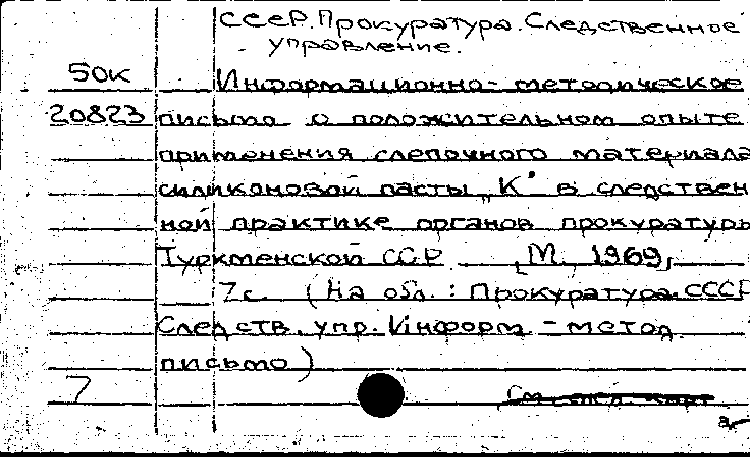 СССР. Прокуратура. Следственное
управление.
50к Информационно-методическое
20823 письмо о положительном опыте
применения слепочного материала
силиконовой пасты „К" в следствен
ной практике органов прокуратуры
Туркменской ССР [М., 1969,
7с. (На обл.: Прокуратура СССР
Следств. упр. Информ-метод
письмо)
7